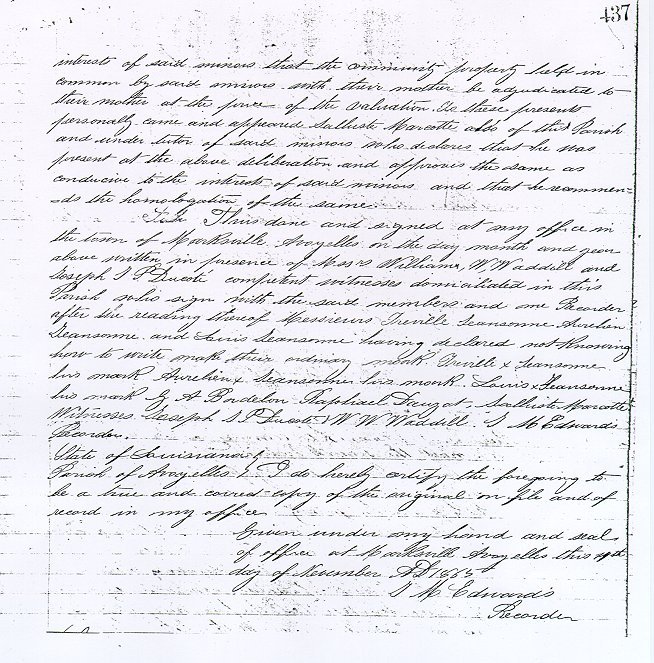 437
interests of said minors that the community property held in
common by said minors with their mother be adjudicated to
their mother at the price of the valuation. To these presents
personally came and appeared Salliste Marcotte also of this Parish
and under tutor of said minors who declares that he was
present at the above deliberation and approves the same as
conducive to the interests of said minors and that he recommen=
=ds the homologation of the same.
Thus done and signed at my office in
the town of Marksville Avoyelles on the day month and year
above written in presence of Messrs William W. Waddill and
Joseph S P. Ducoté competent witnesses domiciliated in this
Parish who sign with the said members and me Recorder
after due reading thereof Messieurs Treville Jeansonne Aurelien
Jeansonne and Louis Jeansonne having declared not knowing
how to write make their ordinary mark. Treville x Jeansonne
his mark Aurelien x Jeansonne his mark. Louis x Jeansonne
his mark G A Bordelon Raphael Dauzat, Salliste Marcotte
Witnesses Joseph S P Ducoté W W Waddill. S M Edwards
Recorder.
State of Louisiana
Parish of Avoyelles I do hereby certify the foregoing to
be a true and correct copy of the original on file and of
record in my office
Given under my hand and seal
of office at Marksville Avoyelles this 19th
day of November AD 1865
S M Edwards
Recorder